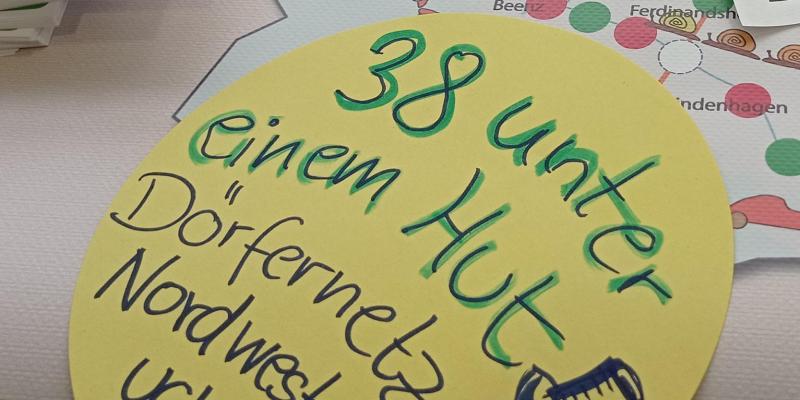 Beenz
Ferdinandsh
indenhagen
38 unter
einem Hut
Dörfernetz
Nordwest